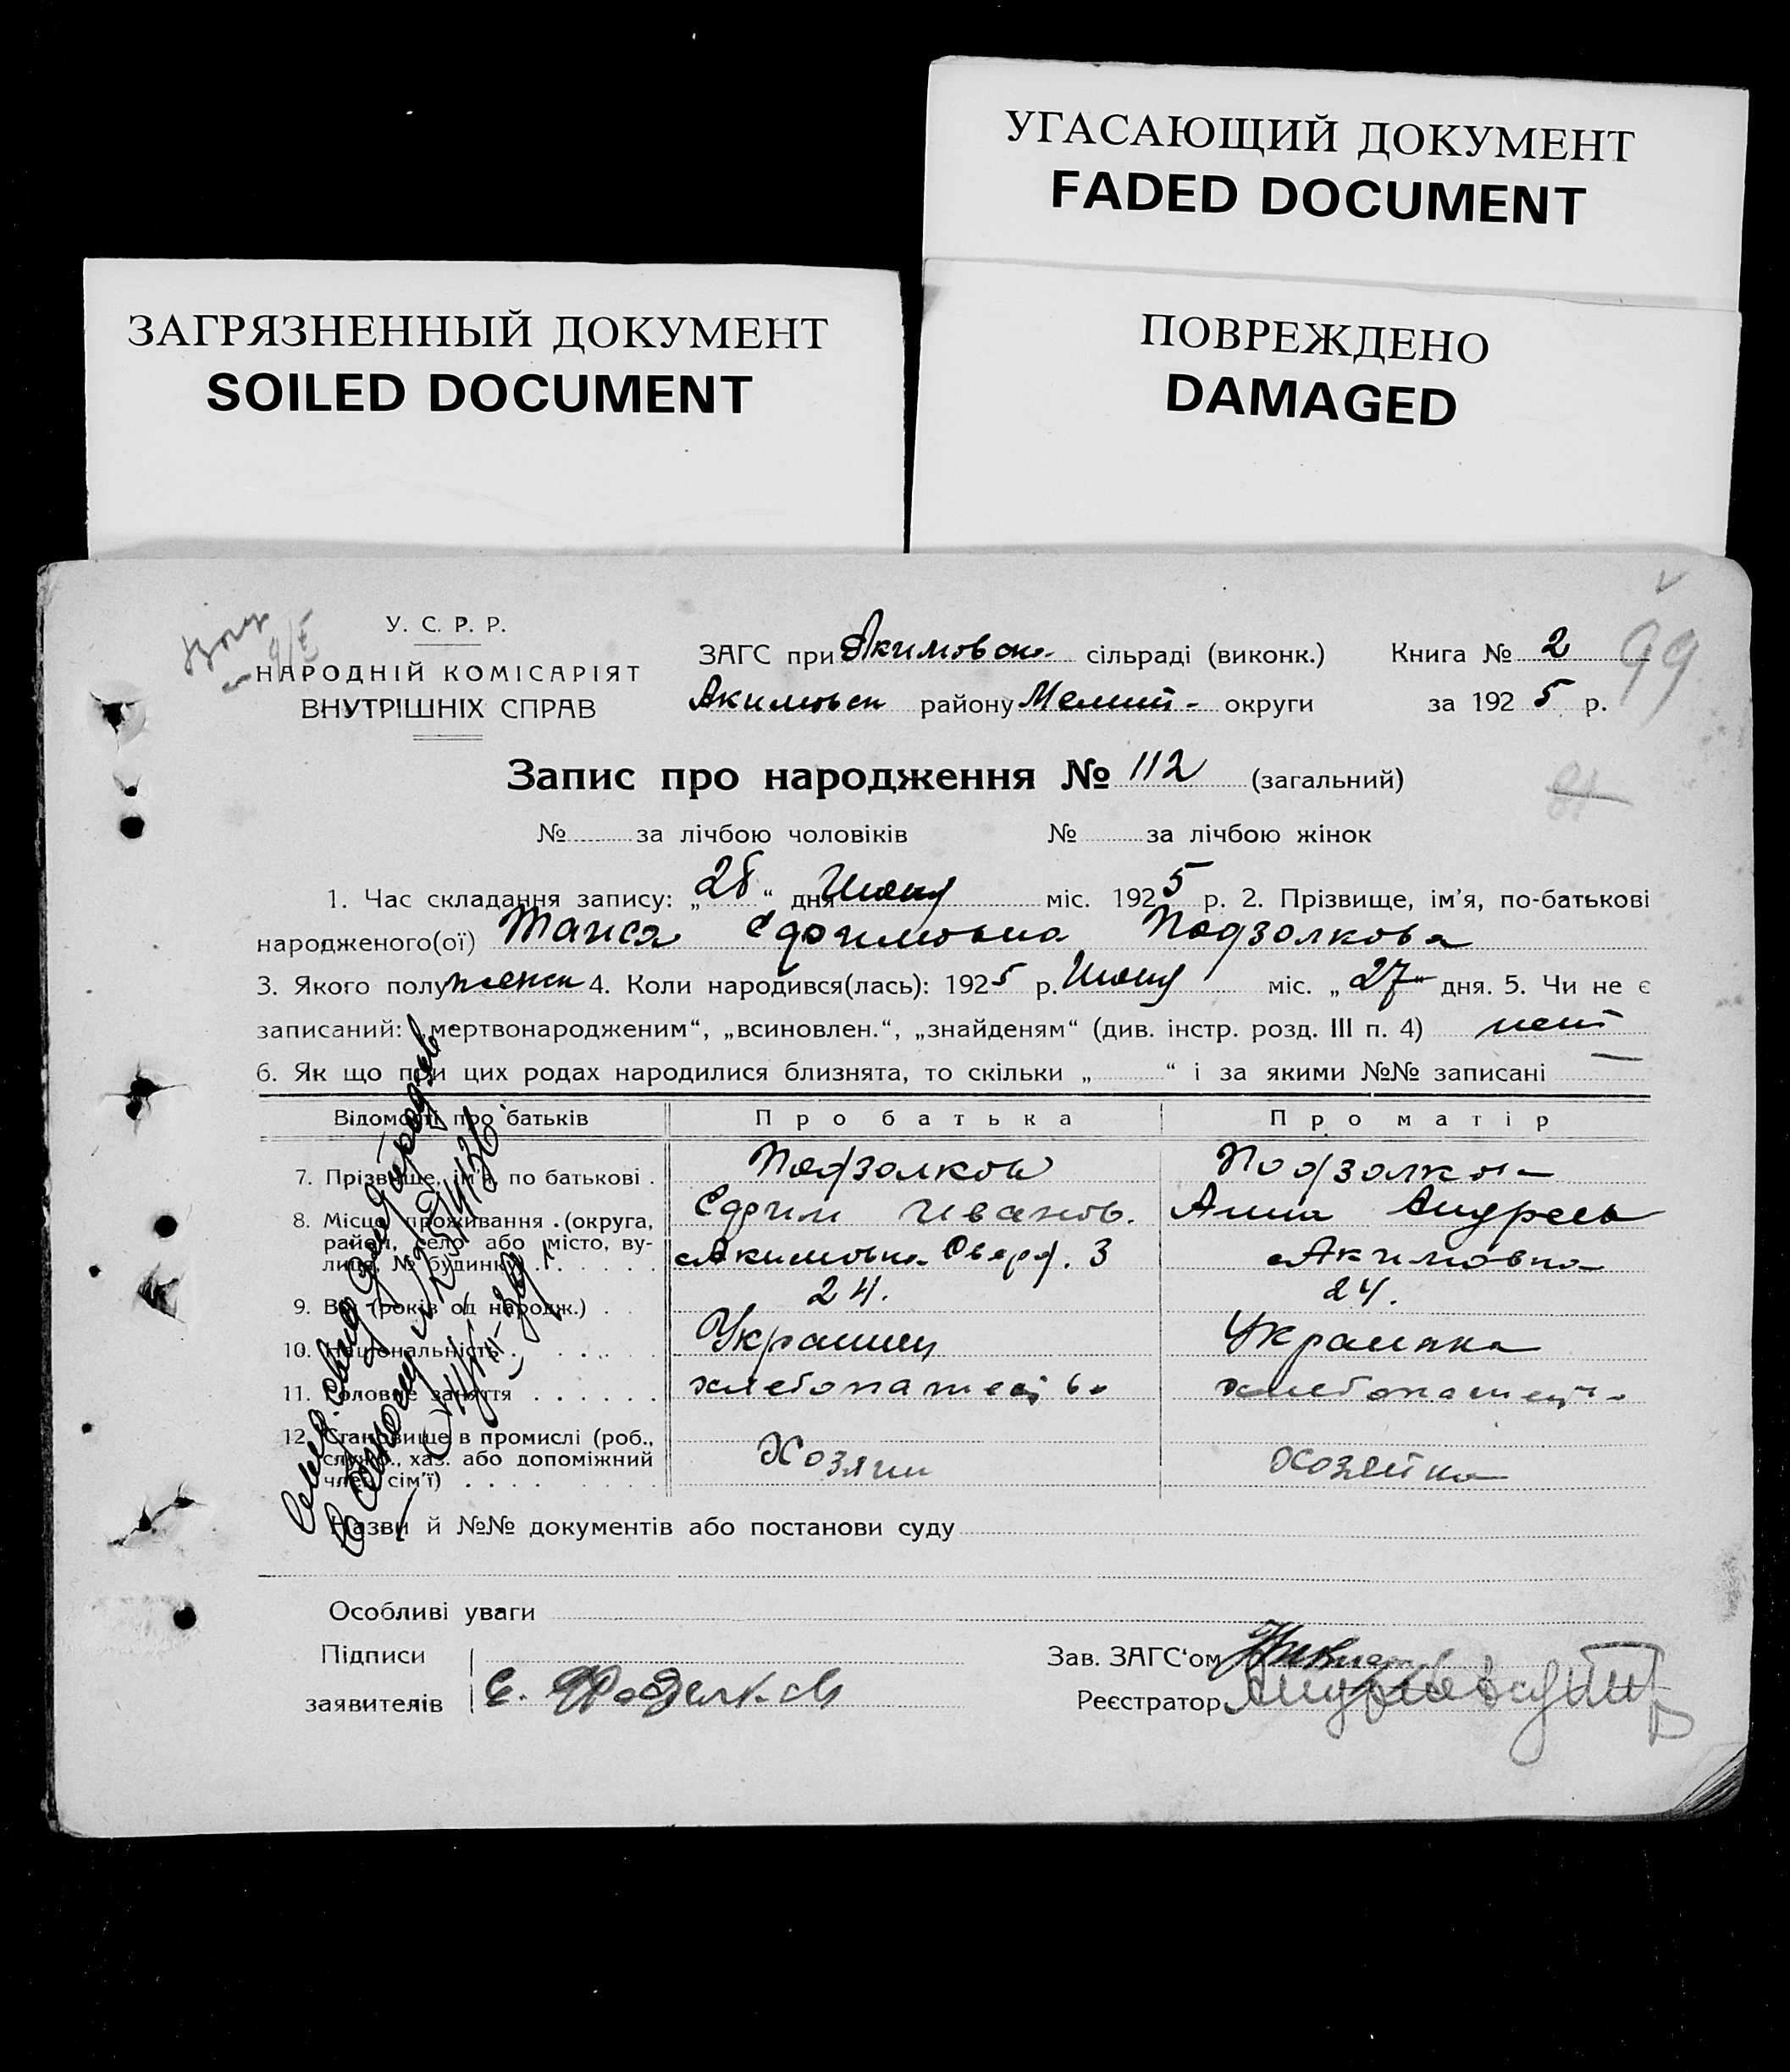 УГАСАЮЩИЙ ДОКУМЕНТ
FADED DOCUMENT
ЗАГРЯЗНЕННЫЙ ДОКУМЕНТ
SOILED DOCUMENT
ПОВРЕЖДЕНО
DAMAGED
У. С. Р. Р.
НАРОДНІЙ КОМІСАРІЯТ
ВНУТРІШНІХ СПРАВ
ЗАГС при Акимовск. сільраді (виконк.) Книга № 2
99
Акимовск району Мелит- округи за 1925 р.
Запис про народження № 112 (загальний)
№ за лічбою чоловіків № за лічбою жінок
1. Час складання запису: „28“ дня Июня міс. 1925 р. 2. Прізвище, ім'я, по-батькові
народженого(ої) Таиса Ефимовна Подзолкова
3. Якого полу женск 4. Коли народився(лась): 1925 р. Июня міс. „27“ дня. 5. Чи не є
записаний: „мертвонародженим“, „всиновлен.“, „знайденям“ (див. інстр. розд. III п. 4) нет
6. Як що при цих родах народилися близнята, то скільки „ “ і за якими №№ записані —
Відомості про батьків Про батька Про матір
7. Прізвище, ім'я, по батькові . Подзолков Подзолков-
8. Місце проживання . (округа, Ефим Иванов. Анна Андреев
район, село або місто, ву-
лиця, № будинку) Акимовка 3 Акимовка
9. Вік (років од народж.) . 24. 24.
10. Національність Украинец Украинка
11. Головне заняття хлебопашество хлебопашест-
12. Становище в промислі (роб.,
служб., хаз. або допоміжний
член сім'ї) Хозяин Хозяйка
Назви й №№ документів або постанови суду
Особливі уваги
Підписи
заявителів Е. Подзолков
Зав. ЗАГС'ом
Реєстратор